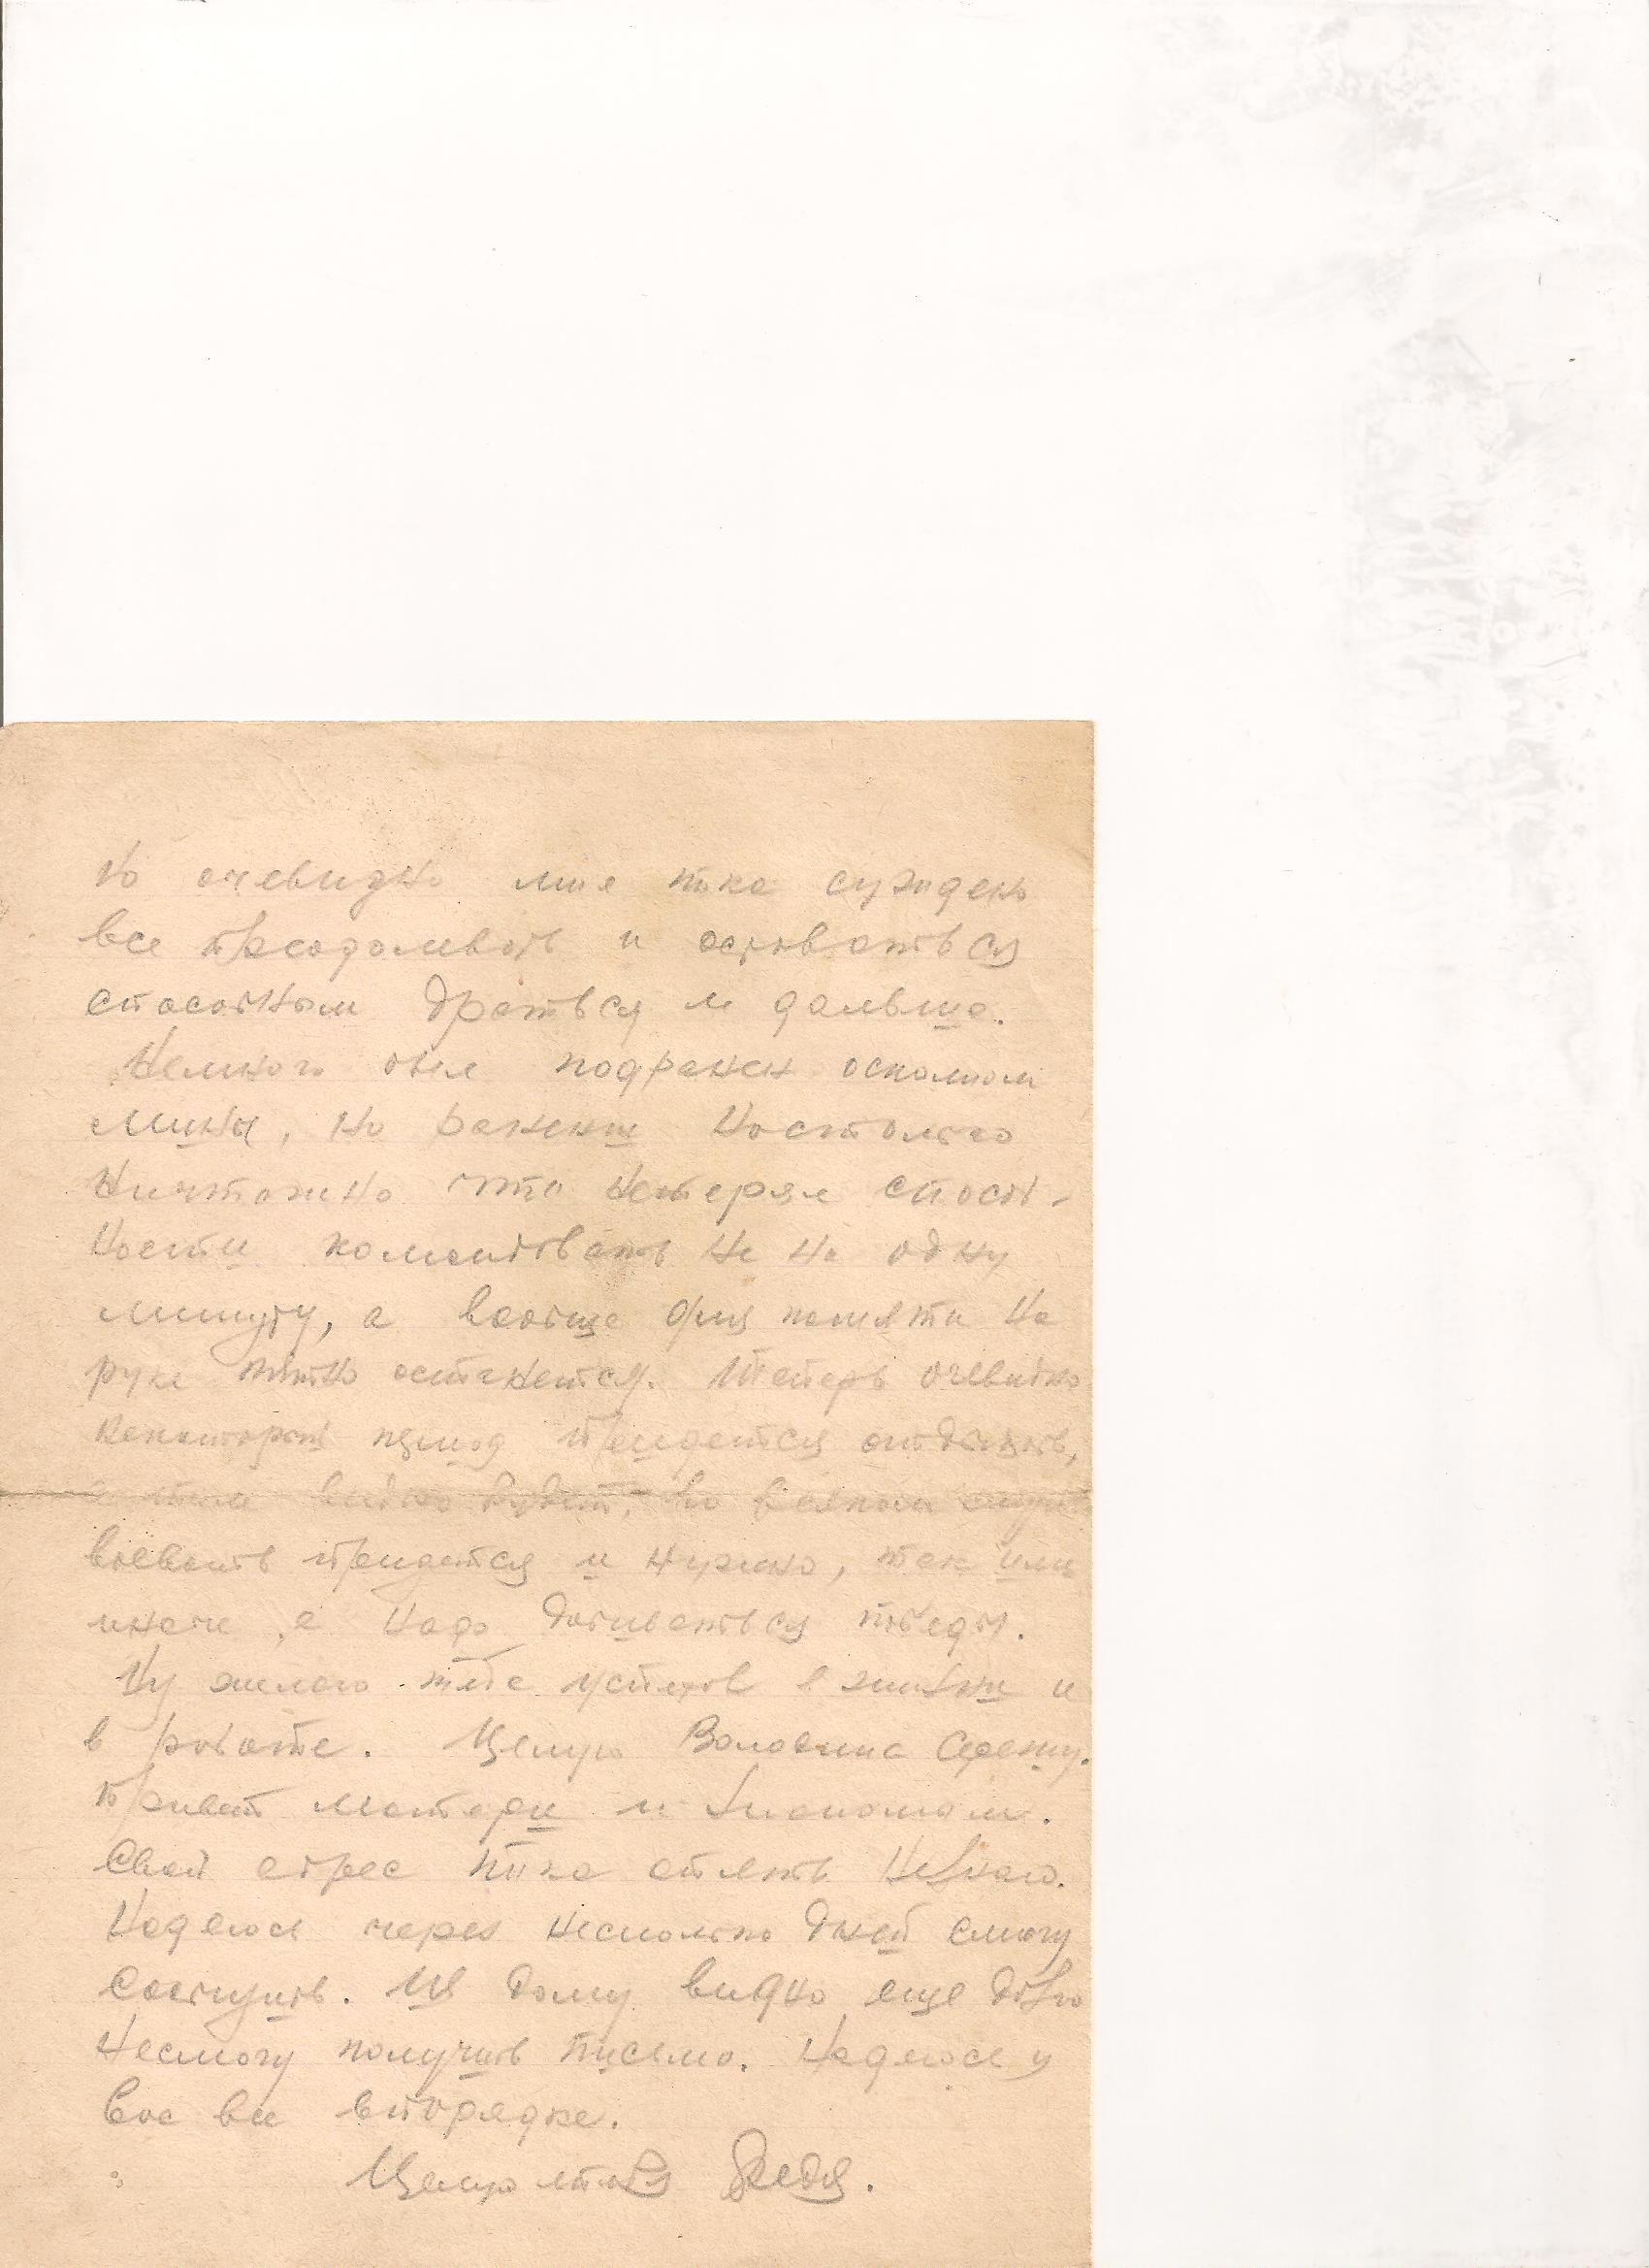 Но очевидно мне пока суждено
все преодолевать и оставаться
способным драться и дальше.
Немного был подранен осколком
мины, но ранения настолько
ничтожно что непотерял способ-
ности командовать не на одну
минуту, а вообще для памяти на
руке пятно останется. Теперь очевидно
некоторый период прийдется отдыхать,
а там видно будет, во всяком случае
воевать прийдется и нужно, так или
иначе, а надо добиваться победы.
Ну желаю тебе успехов в жизни и
в работе. Целую Сережу.
Привет матери и знакомым.
Свой адрес пока опять незнаю.
Надеюсь через несколько дней смогу
сообщить. Из дому видно еще долго
несмогу получить письмо. Надеюсь у
Вас все впорядке.
Целую твой Федя.